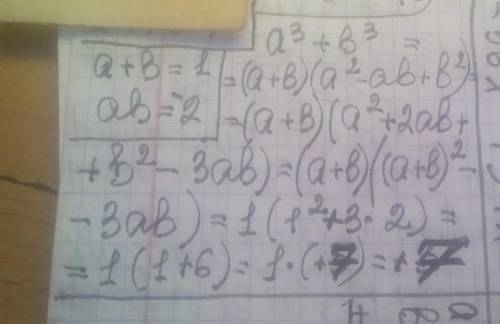 a³ + b³ =
a+b = 1 = (a+b)(a² - ab + b²) =
ab = -2 = (a+b)(a² + 2ab +
+ b² - 3ab) = (a+b)((a+b)² -
- 3ab) = 1(1² + 3 · 2) =
= 1(1+6) = 1·(+7) = +7